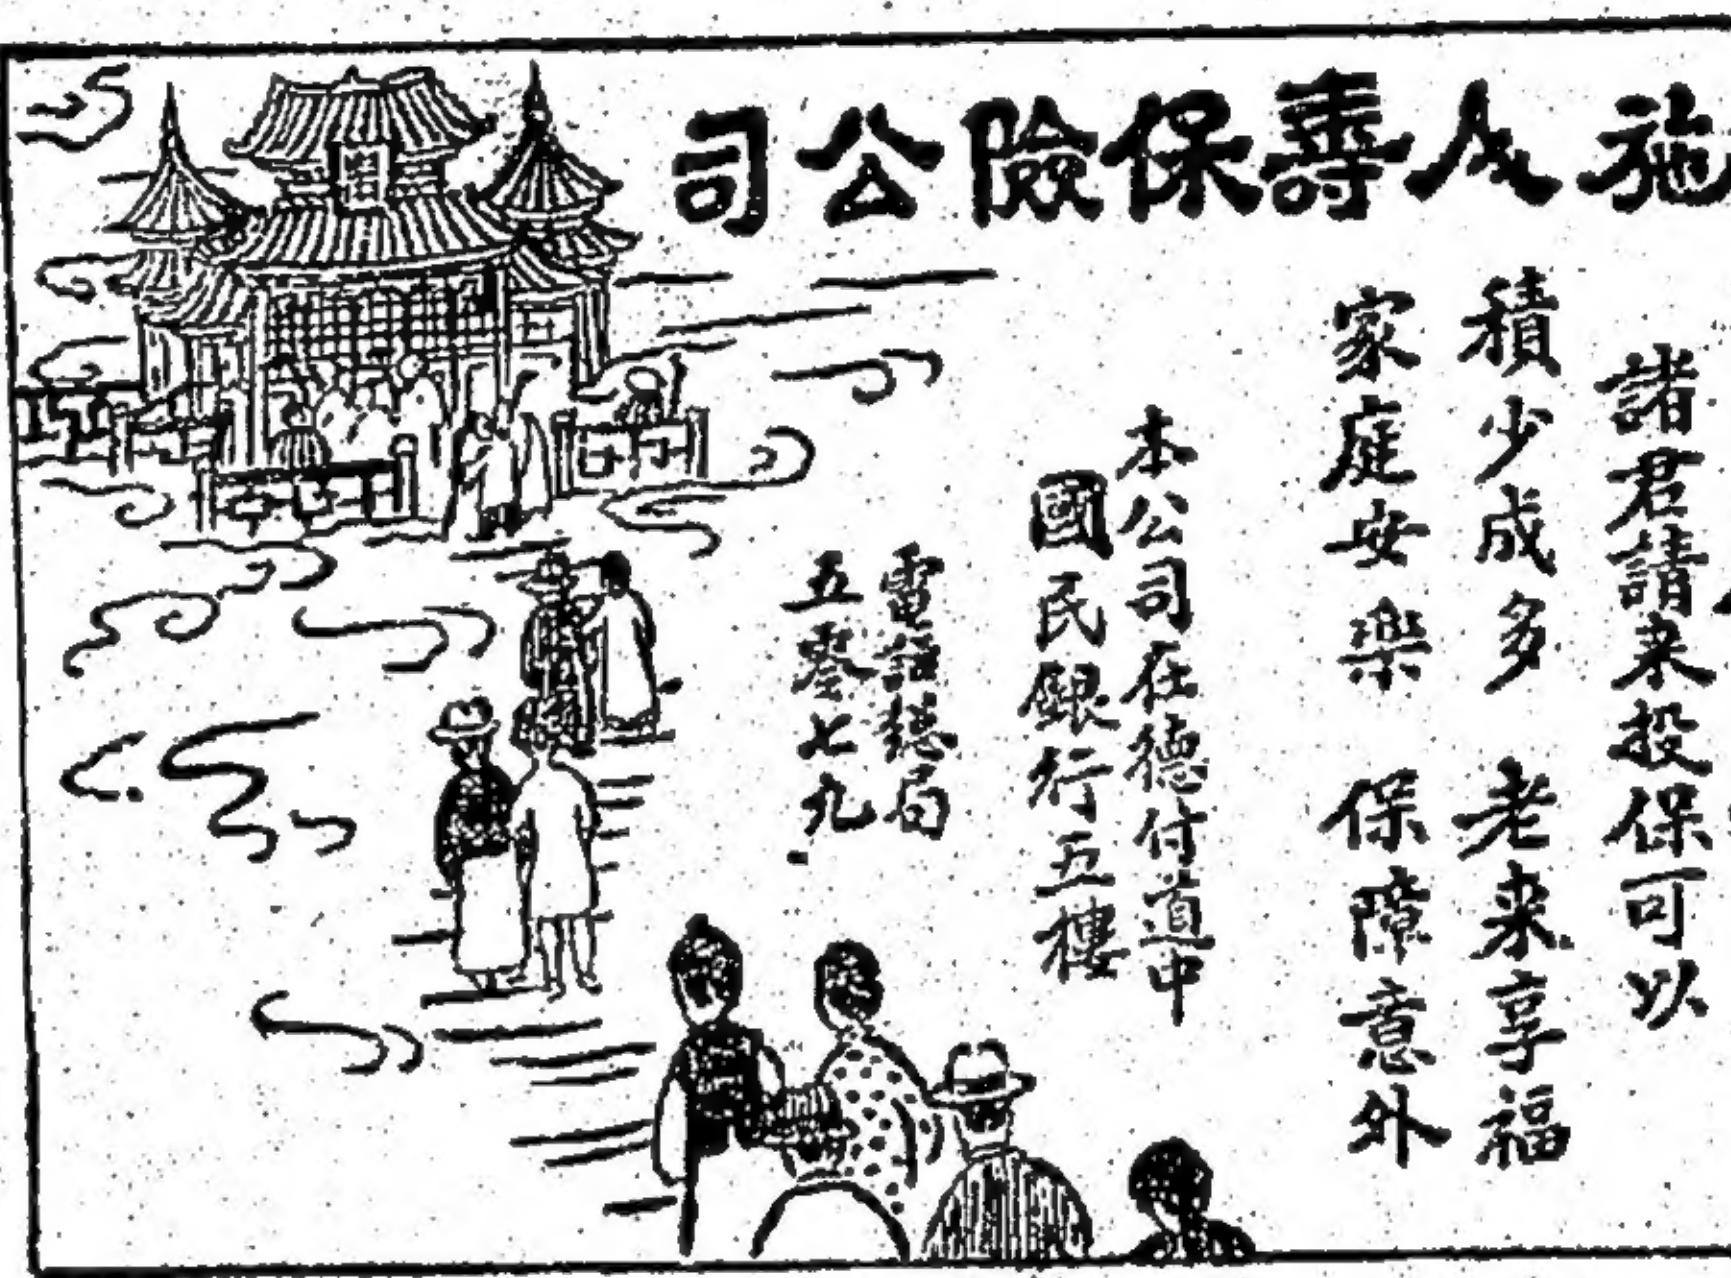 施人壽保險公司
諸君請来投保可以
積少成多 老来享福
家庭安樂 保障意外
本公司在德付道中
國民銀行五樓
電話總局
五零七九